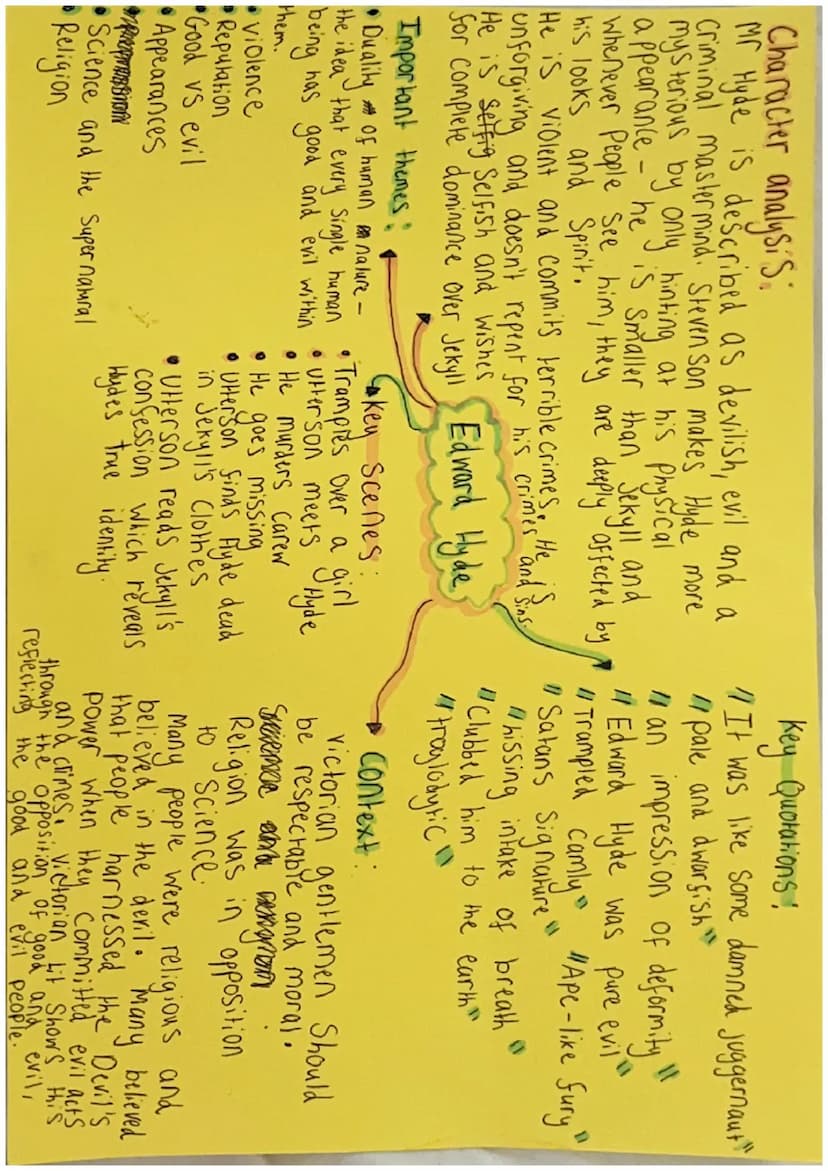 Character analysis:
Mr Hyde is described as devilish, evil and a
criminal mastermind. Stevenson makes Hyde more
mysterious by only hinting at his physical
appearance - he is smaller than Jekyll and
whenever people see him, they are deeply affected by
his looks and spirit.
He is violent and commits terrible crimes. He is
unforgiving and doesn't repent for his crimes and sins.
He is selfish and wishes
for complete dominance over Jekyll
Key Quotations:
"It was like some damned juggernaut"
"pale and dwarfish"
"an impression of deformity"
"Edward Hyde was pure evil"
"Trampled camly" "Ape-like fury"
"Satans signature"
"hissing intake of breath"
"Clubbed him to the earth"
"troglodytic"
Edward Hyde
Important themes:
• Duality of human nature -
the idea that every single human
being has good and evil within
them.
• violence
• Reputation
• Good vs evil
• Appearances
• Science and the supernatural
• Religion
Key scenes:
• Tramples over a girl
• Utterson meets Hyde
• He murders Carew
• He goes missing
• Utterson finds Hyde dead
in Jekyll's clothes
• Utterson reads Jekyll's
confession which reveals
Hydes true identity.
Context:
Victorian gentlemen should
be respectable and moral.
Religion was in opposition
to science.
Many people were religious and
believed in the devil. Many believed
that people harnessed the Devil's
power when they committed evil acts
and crimes. Victorian lit shows this
through the opposition of good and evil,
reflecting the good and evil people.